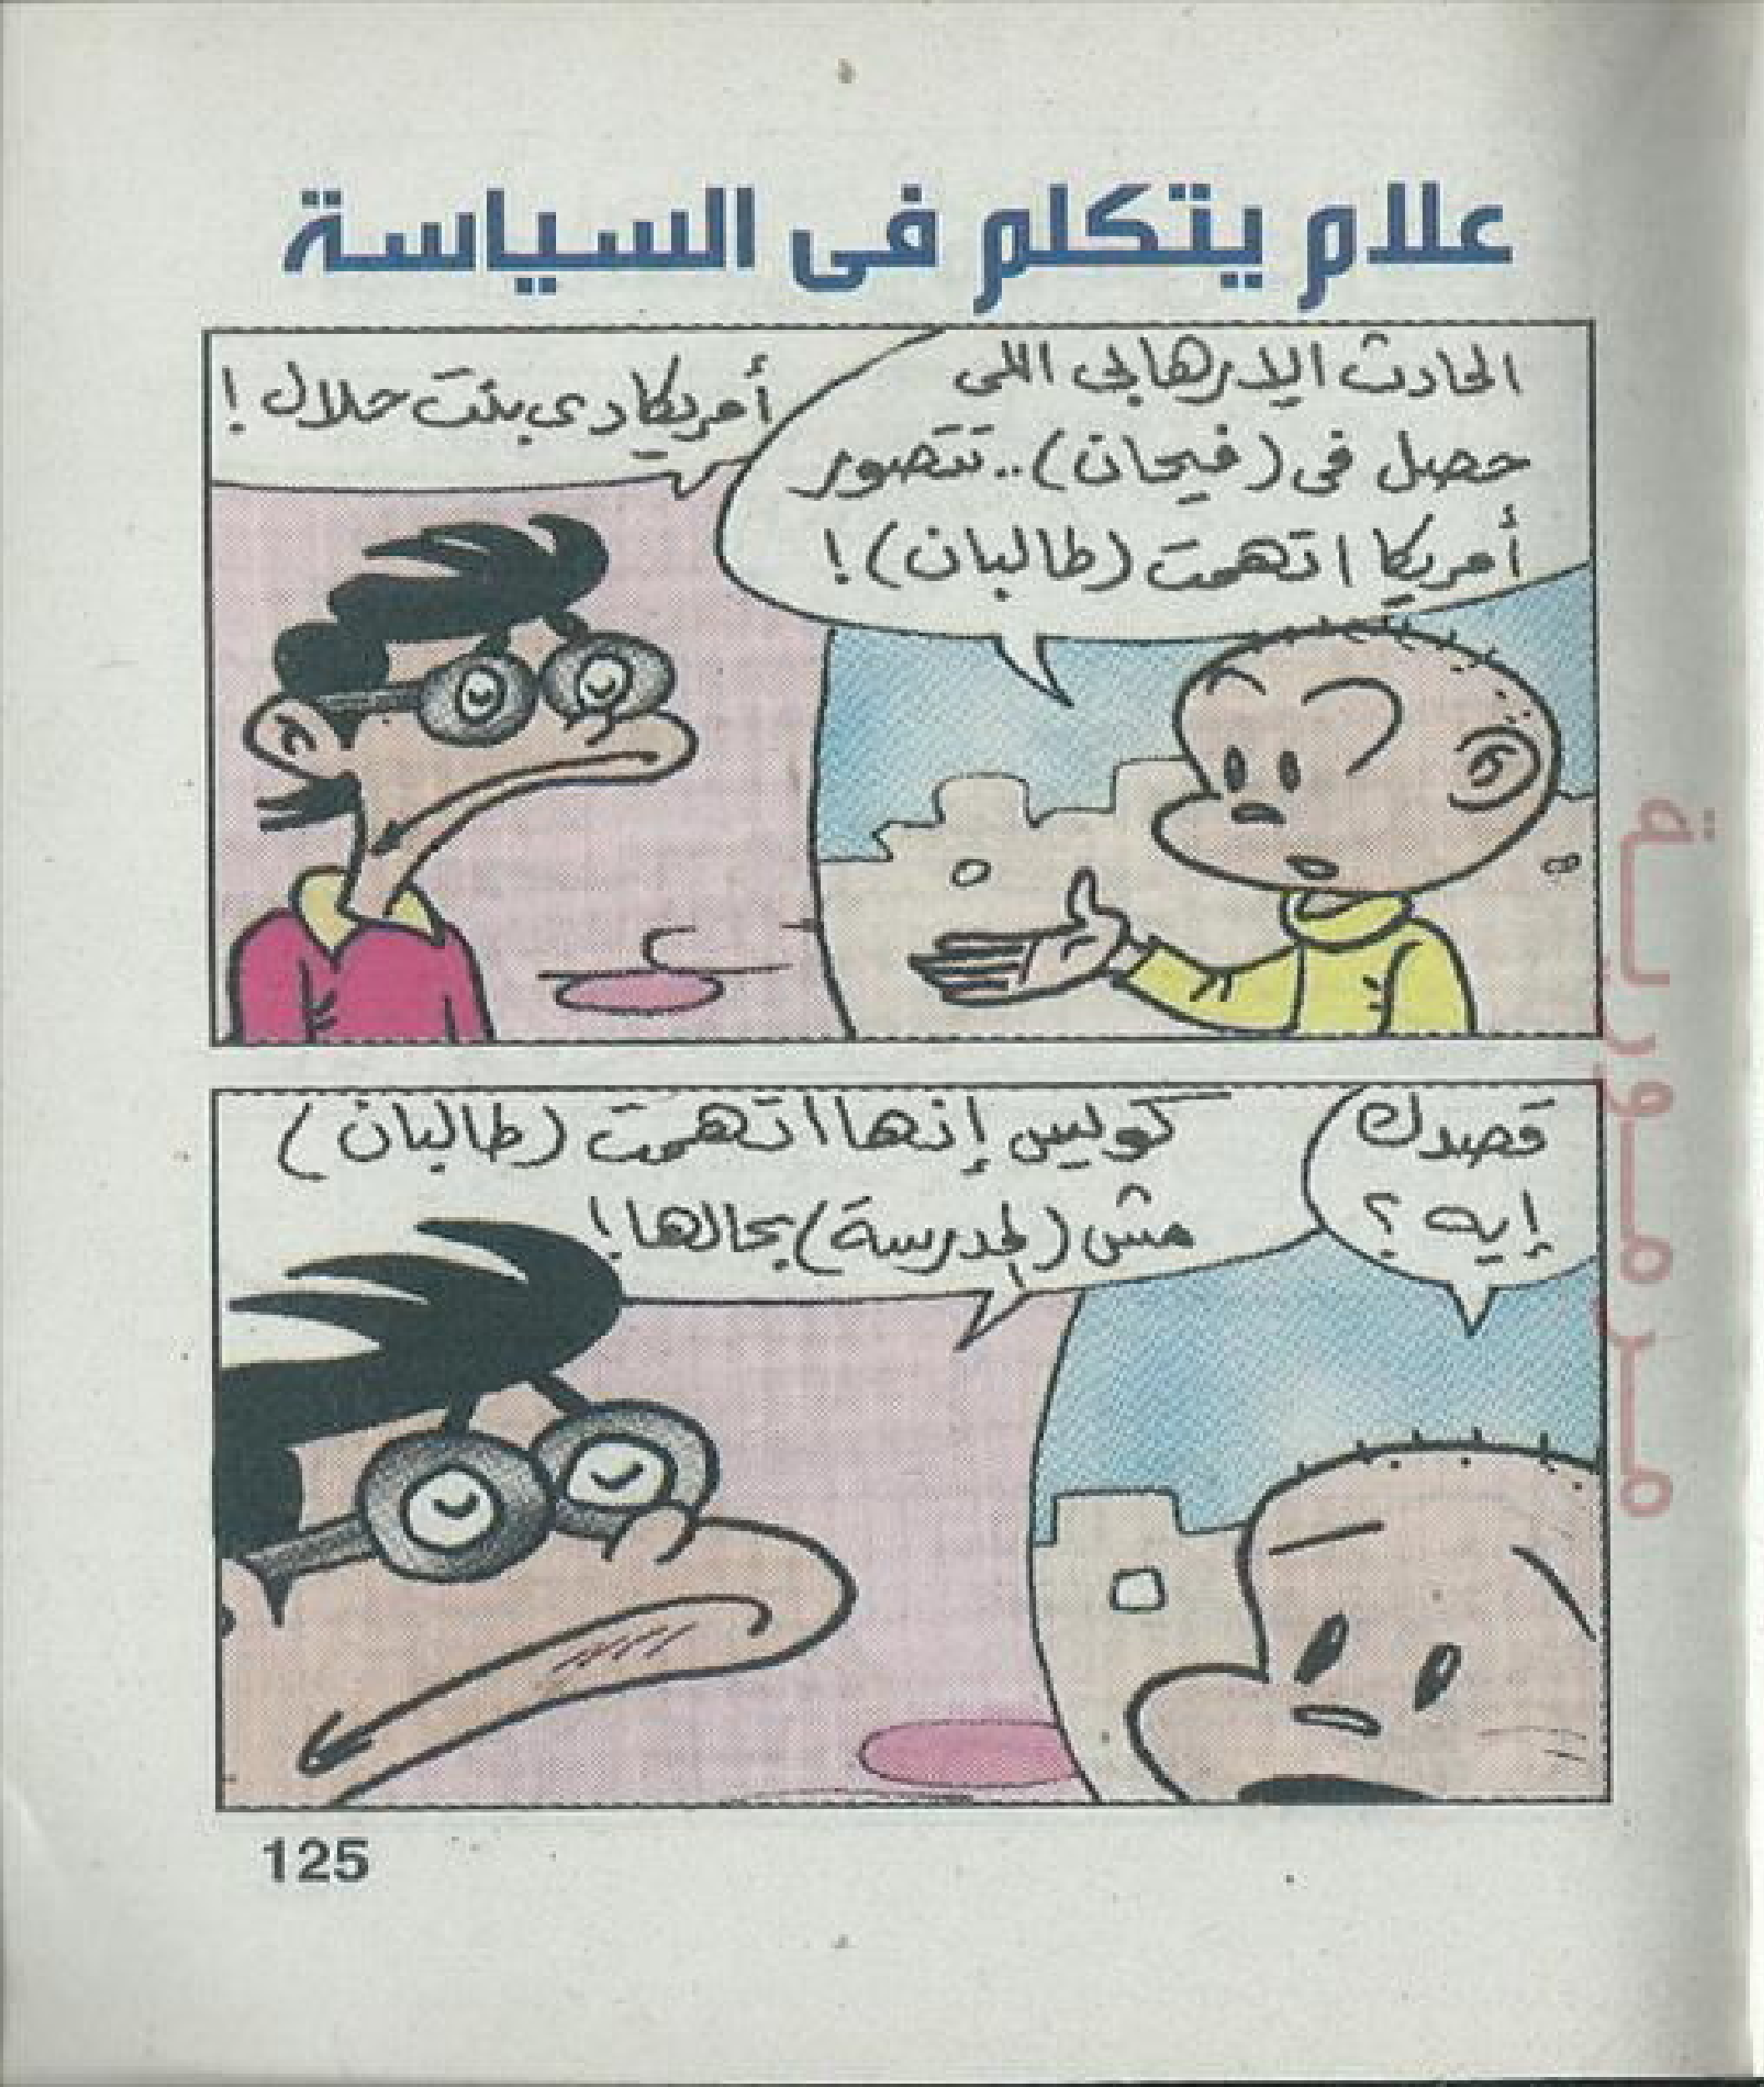 علام يتكلم فى السياسة
الحادث الإرهابى اللى
حصل فى (فيجان).. تتصور
أمريكا اتهمت (طالبان)!
أمريكا دى بنت حلال!
قصدك
إيه؟
كويس إنها اتهمت (طالبان)
مش (المدرسة) بحالها!
125
مرمورية